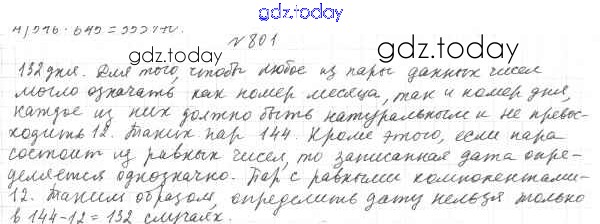 gdz.today
4) 916·645=
№ 801 gdz.today
132 дня. Для того, чтобы любое из пары данных чисел
могло означать как номер месяца, так и номер дня,
каждое из них должно быть натуральным и не превос-
ходить 12. Таких пар 144. Кроме этого, если пара
состоит из равных чисел, то записанная дата опре-
деляется однозначно. Пар с равными компонентами-
12. Таким образом, определить дату нельзя только
в 144-12=132 случаях. gdz.today